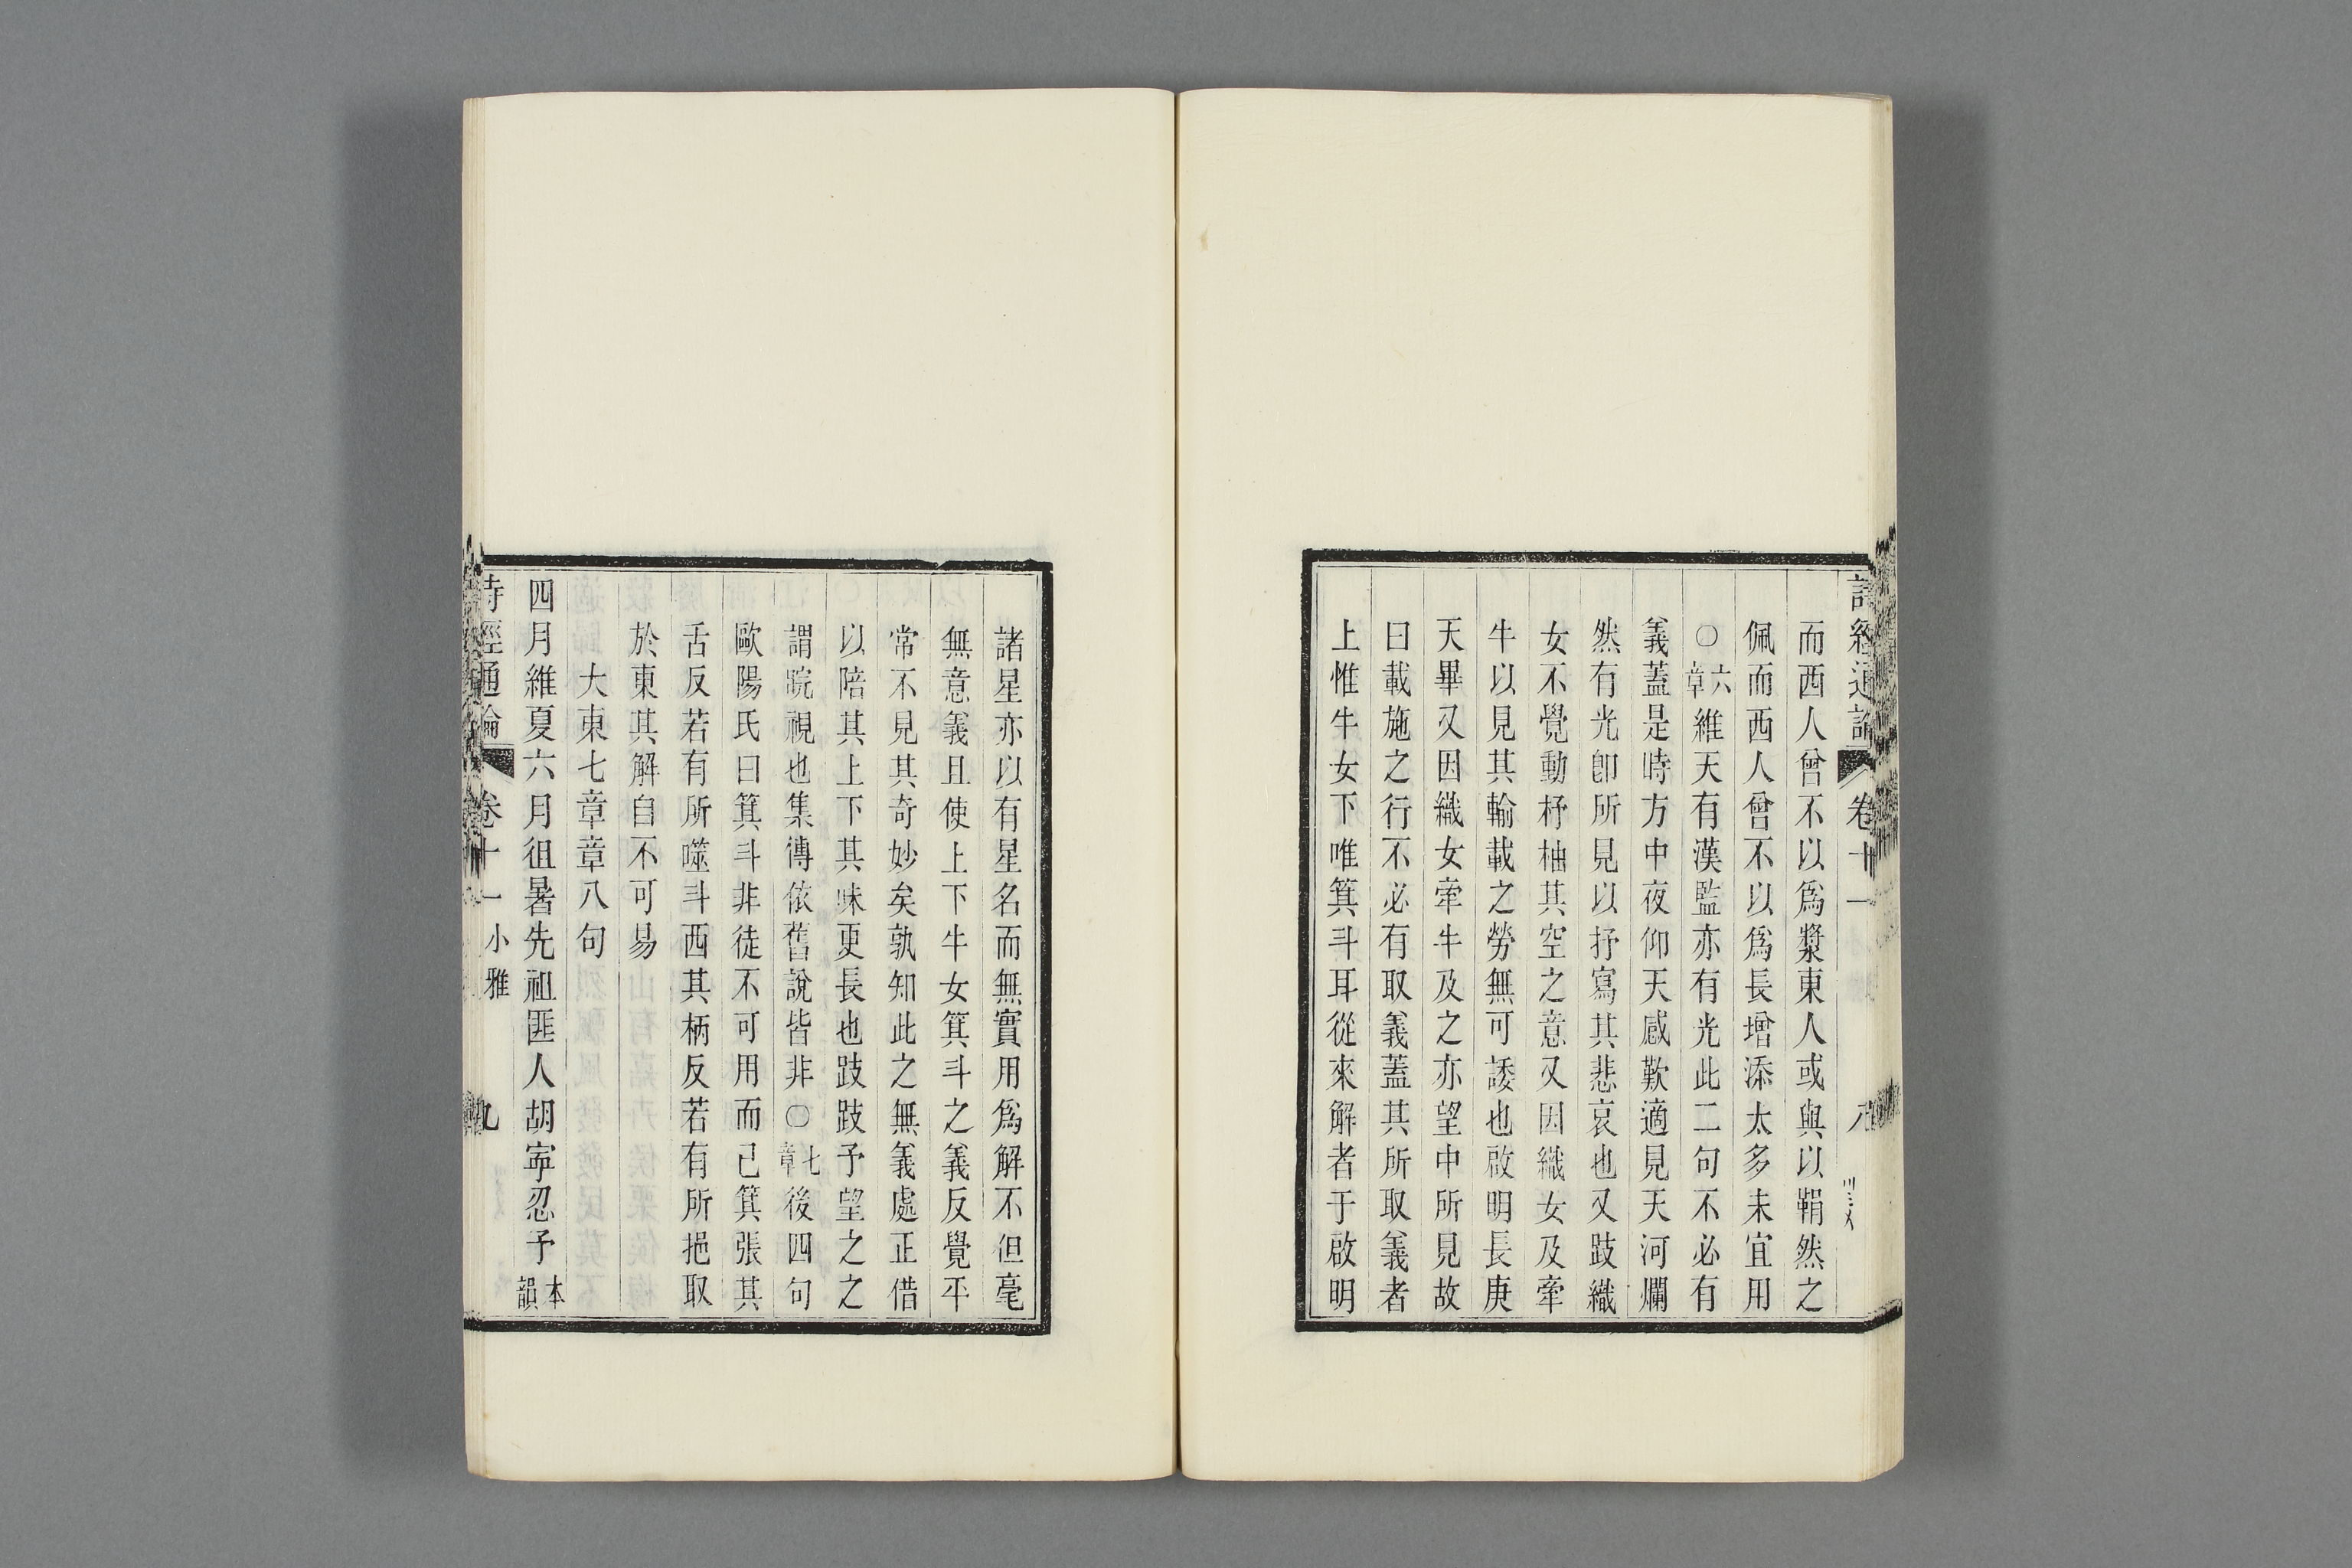 詩經通論 卷十一 八
而西人曾不以爲漿東人或與以鞙然之
佩而西人曾不以爲長增添太多未宜用
〇六章維天有漢監亦有光此二句不必有
義蓋是時方中夜仰天感歎適見天河爛
然有光卽所見以抒寫其悲哀也又跂織
女不覺動杼柚其空之意又因織女及牽
牛以見其輸載之勞無可諉也啟明長庚
天畢又因織女牽牛及之亦望中所見故
曰載施之行不必有取義蓋其所取義者
上惟牛女下唯箕斗耳從來解者于啟明
諸星亦以有星名而無實用爲解不但毫
無意義且使上下牛女箕斗之義反覺平
常不見其奇妙矣孰知此之無義處正借
以陪其上下其味更長也跂跂予望之之
謂睆視也集傳依舊說皆非〇七章後四句
歐陽氏曰箕斗非徒不可用而已箕張其
舌反若有所噬斗西其柄反若有所挹取
於東其解自不可易
大東七章章八句
四月維夏六月徂暑先祖匪人胡寕忍予本韻
詩經通論 卷十一 小雅 九